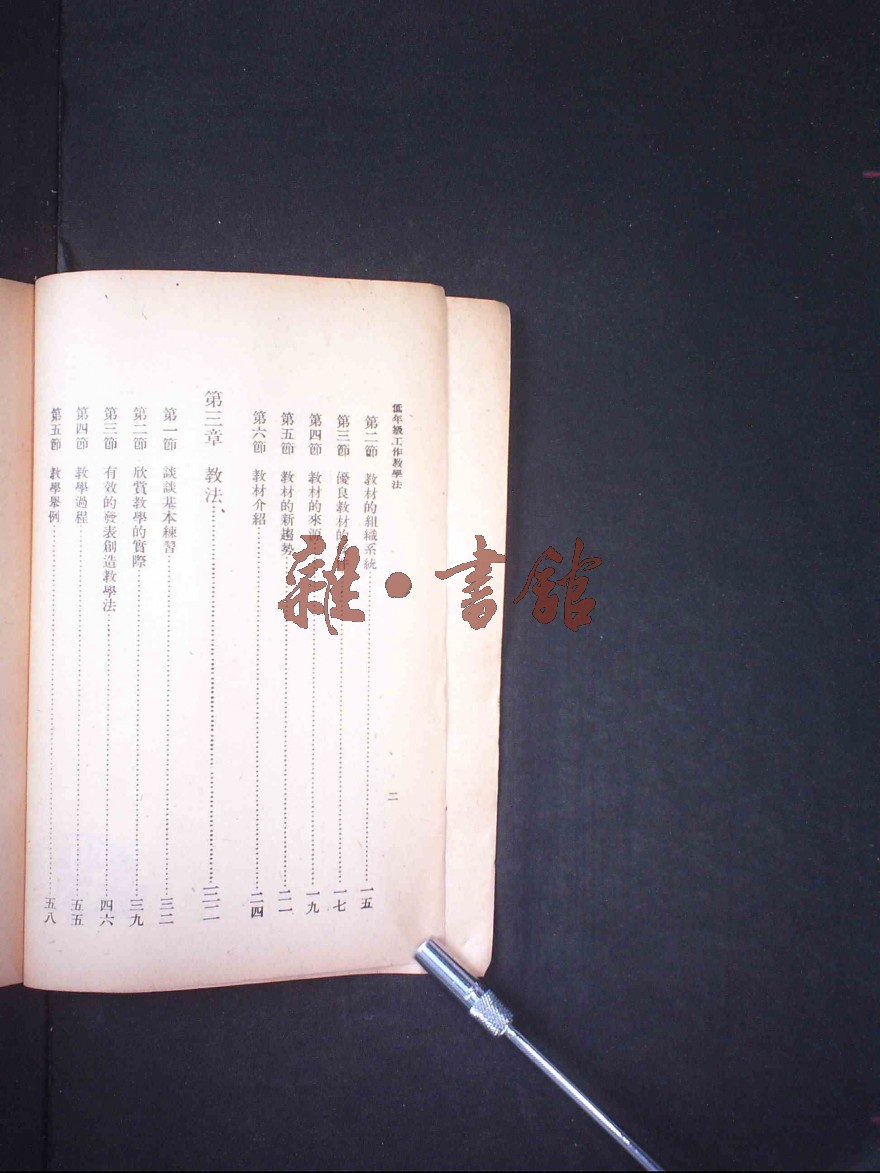 低年級工作教學法
二
第二節 教材的組織系統 一五
第三節 優良教材的 一七
第四節 教材的來源 一九
第五節 教材的新趨勢 二一
第六節 教材介紹 二四
第三章 教法、 三二
第一節 談談基本練習 三二
第二節 欣賞教學的實際 三九
第三節 有效的發表創造教學法 四六
第四節 教學過程 五五
第五節 教學舉例 五八
雜·書館